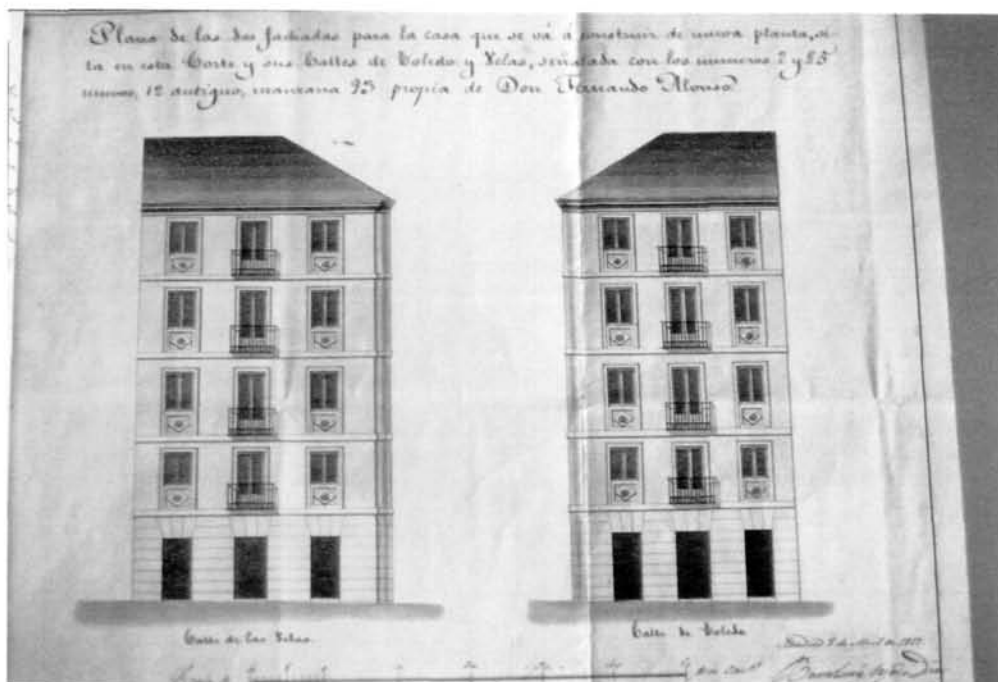 Plano de las dos fachadas para la casa que se vá á construir de nueva planta, si-
ta en esta Corte y sus Calles de Toledo y Velas, señalada con los numeros 2 y 25
nuevos, 12 antiguo, manzana 95 propia de Don Fernando Alonso
Calle de las Velas.
Calle de Toledo
Madrid de Abril de